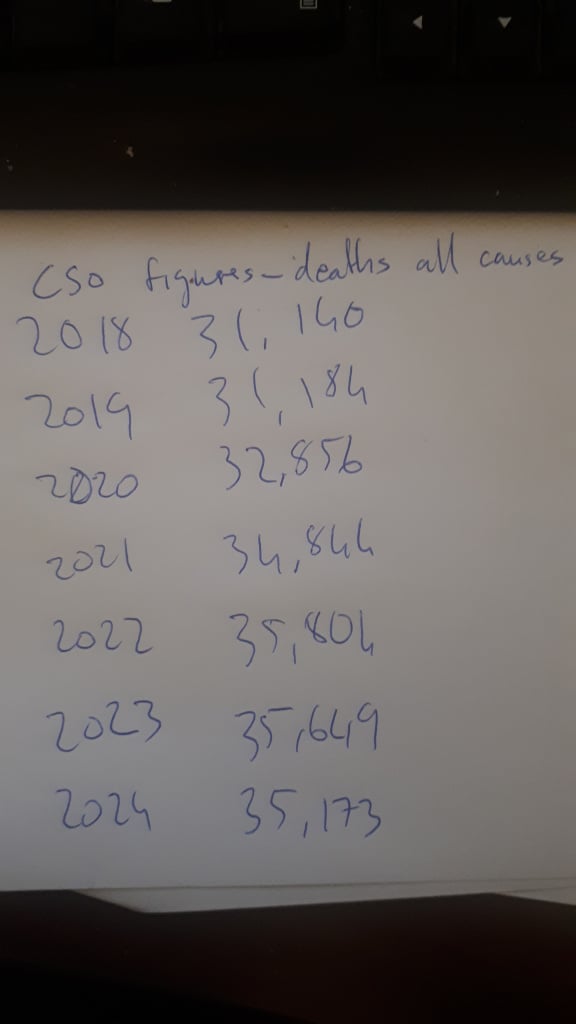 CSO figures - deaths all causes
2018 31,140
2019 31,184
2020 32,856
2021 34,844
2022 35,804
2023 35,649
2024 35,173